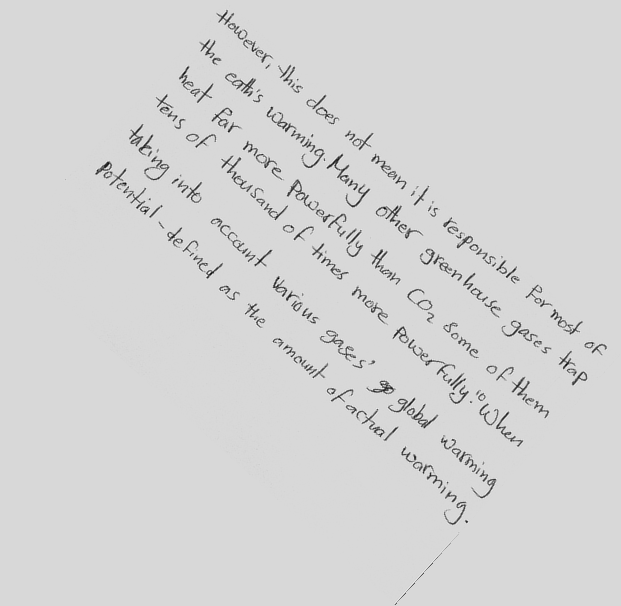 However, this does not mean it is responsible for most of
the eath's warming. Many other greenhouse gases trap
heat far more powerfully than CO₂ some of them
tens of thousand of times more powerfully.¹⁰ When
taking into account various gases' global warming
potential - defined as the amount of actual warming.